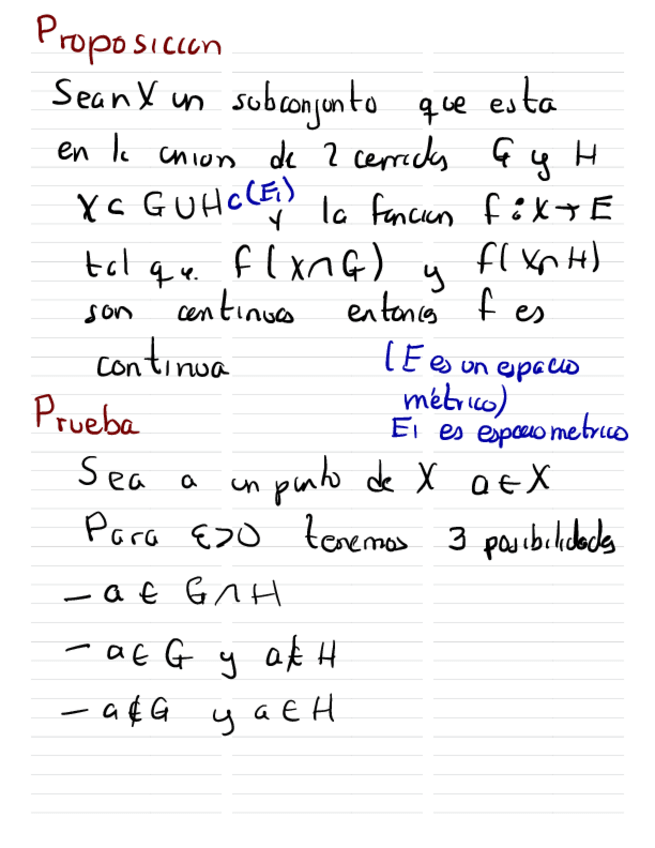 Proposicion
Sean X un subconjunto que esta
en la union de 2 cerrados G y H
X ⊂ G ∪ H ⊂ (E₁) y la funcion f: X → E
tal que f(X∩G) y f(X∩H)
son continuas entonces f es
continua
(E es un espacio
métrico)
E₁ es espacio metrico
Prueba
Sea a un punto de X a ∈ X
Para ε>0 tenemos 3 posibilidades
- a ∈ G ∩ H
- a ∈ G y a ∉ H
- a ∉ G y a ∈ H